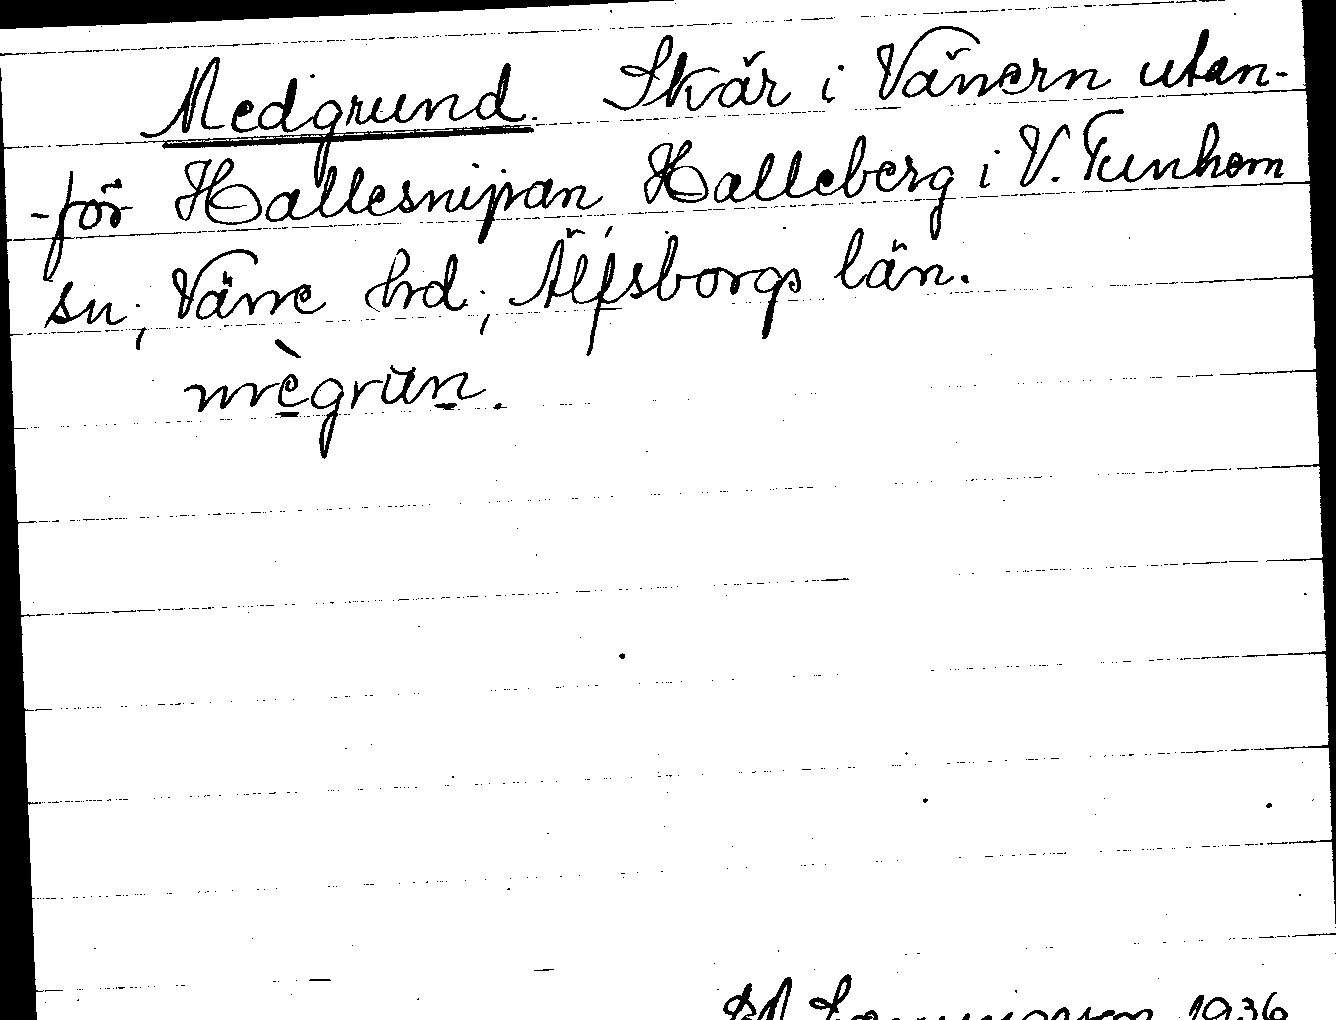 Medgrund. Skär i Vänern utan-
-för Hallesnipan Halleberg i V. Tunhem
sn, Väne hd, Älfsborgs län.
mègrun.
1936